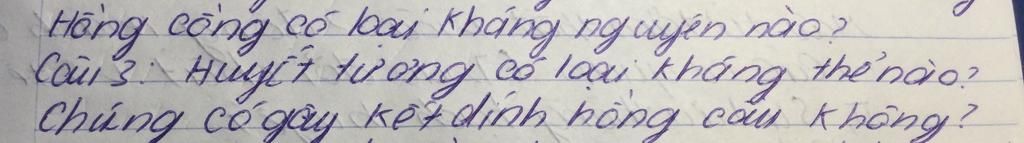 Hồng cồng có loại kháng nguyên nào?
Câu 3: Huyết tương có loại kháng thể nào?
Chúng có gây kết dính hồng cầu không?